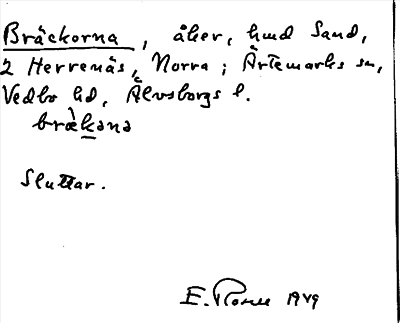 Bräckorna, åker, hmd Sand,
2 Herrenäs, Norra; Ärtemarks sn,
Vedbo hd, Älvsborgs l.
bræ̀kana
Sluttar.
E. 1949